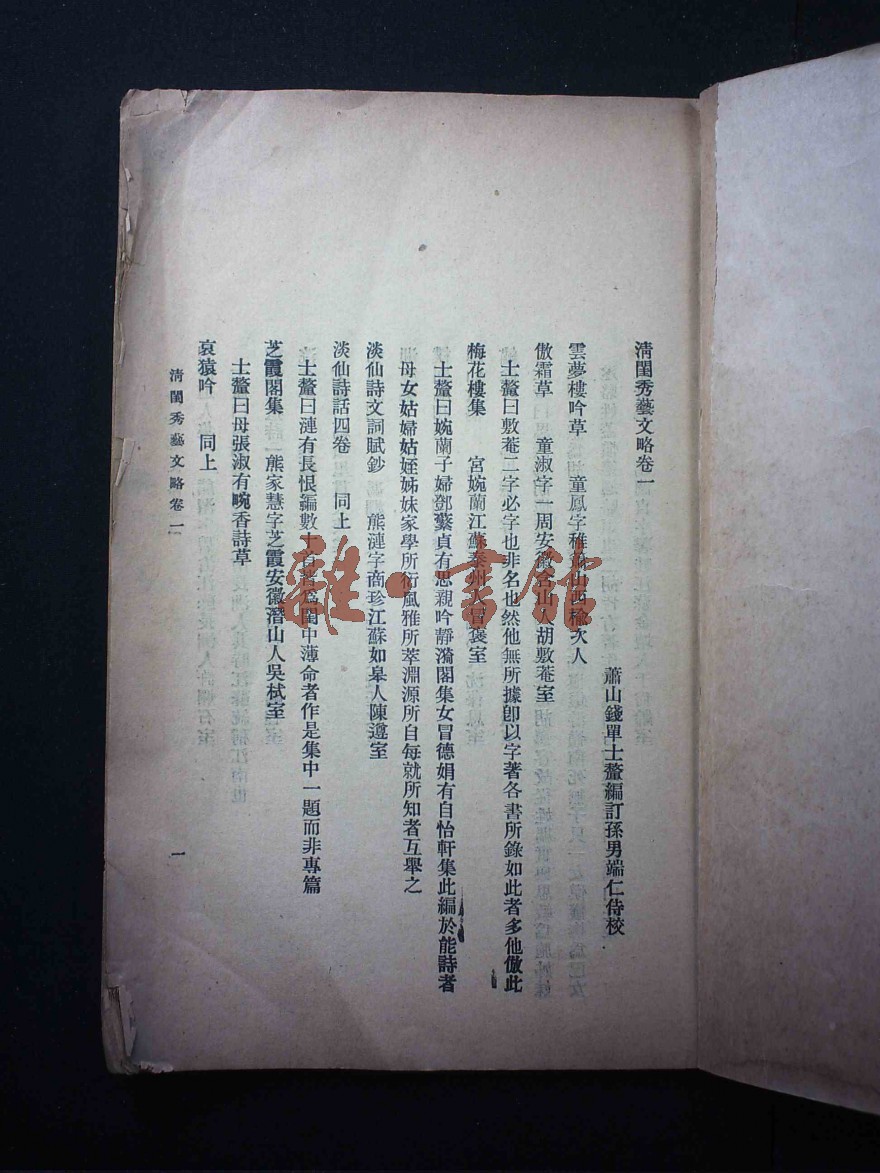 清閨秀藝文略卷一
蕭山錢單士釐編訂孫男端仁侍校
雲夢樓吟草 童鳳字稚 山西楡次人
傲霜草 童淑字一周安徽含山人胡敷菴室
士釐曰敷菴二字必字也非名也然他無所據卽以字著各書所錄如此者多他倣此
梅花樓集 宮婉蘭江蘇泰州人冒褒室
士釐曰婉蘭子婦鄧蘩貞有思親吟靜漪閣集女冒德娟有自怡軒集此編於能詩者
母女姑婦姑姪姊妹家學所衍風雅所萃淵源所自每就所知者互舉之
淡仙詩文詞賦鈔 熊漣字商珍江蘇如皋人陳遵室
淡仙詩話四卷 同上
士釐曰漣有長恨編數十首皆爲閨中薄命者作是集中一題而非專篇
芝霞閣集 熊家慧字芝霞安徽潛山人吳栻室
士釐曰母張淑有畹香詩草
哀猿吟 同上
清閨秀藝文略卷一
一
雜·書館